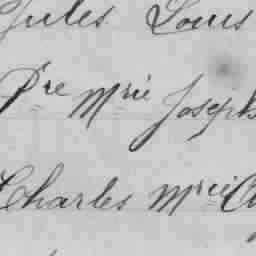 Jules Louis
Pre Mrie Joseph
Charles Mrie